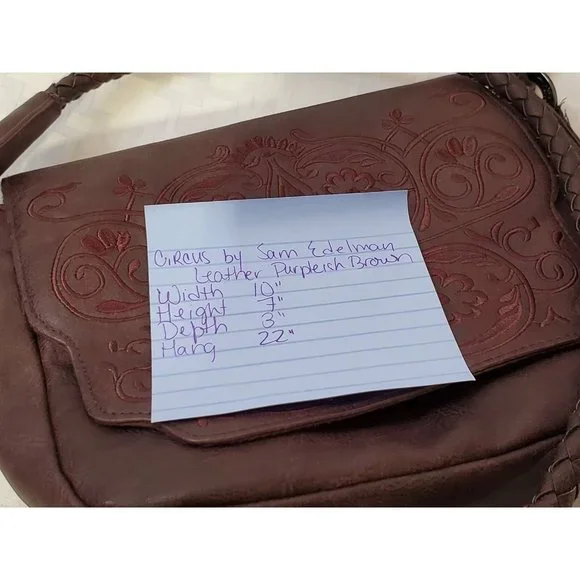 CIRCUS by Sam Edelman
Leather Purpleish Brown
Width 10"
Height 7"
Depth 3"
Hang 22"